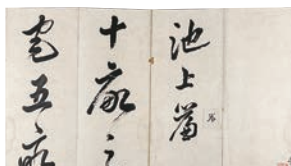 池上篇
十畝之
宅五畝